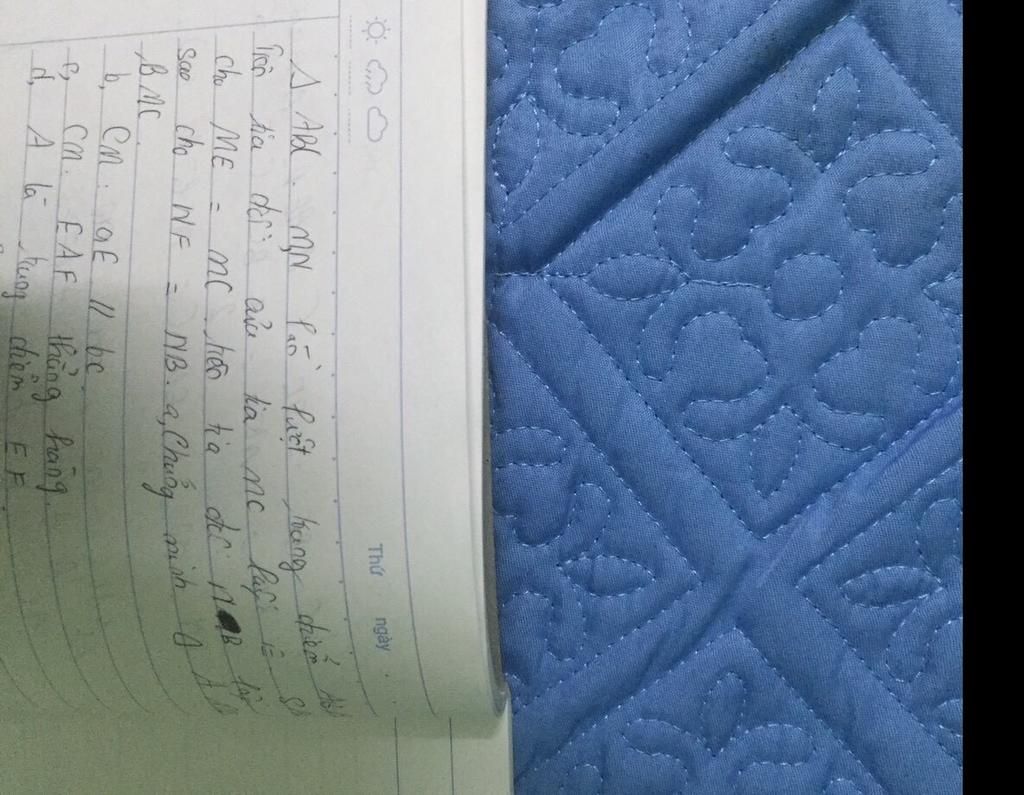 Thứ ngày
Δ ABC. M,N lần lượt trung điểm
Trên tia đối của tia MC lấy E
cho ME = MC. trên tia đối NB lấy
sao cho NF = NB. a, Chứng minh Δ
BMC.
b, CM: aE // bc
c, CM: EAF thẳng hàng.
d, A là trung điểm EF.